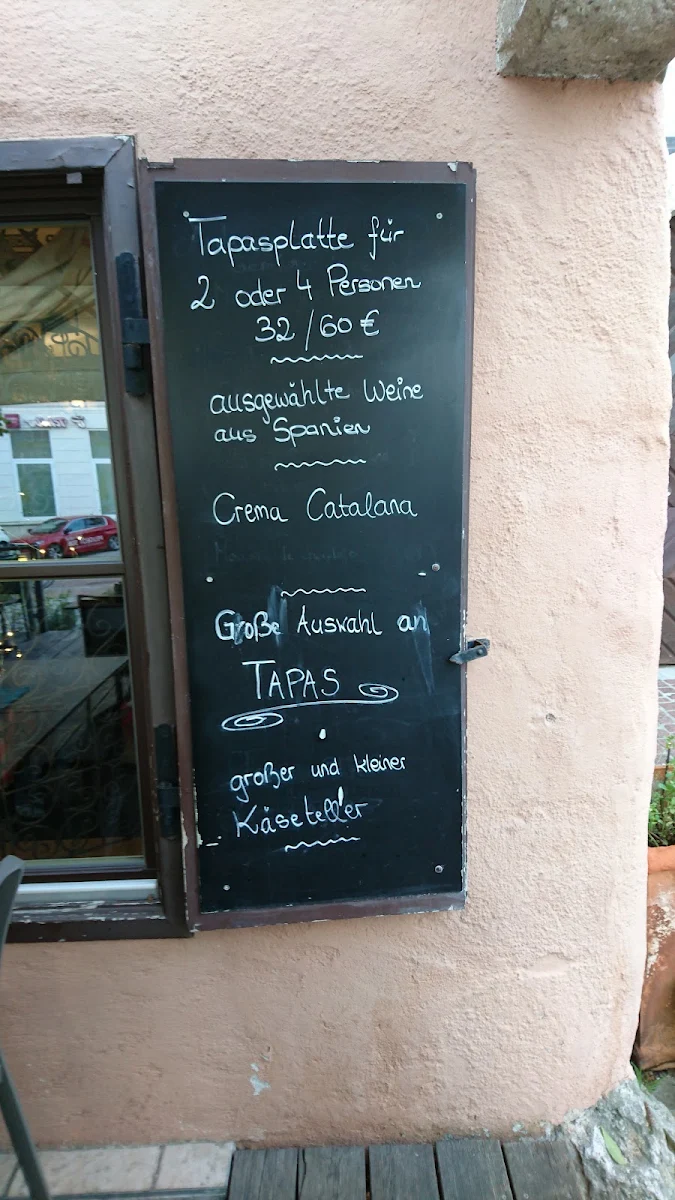 Tapasplatte für
2 oder 4 Personen
32/60 €
ausgewählte Weine
aus Spanien
Crema Catalana
Große Auswahl an
TAPAS
großer und kleiner
Käseteller